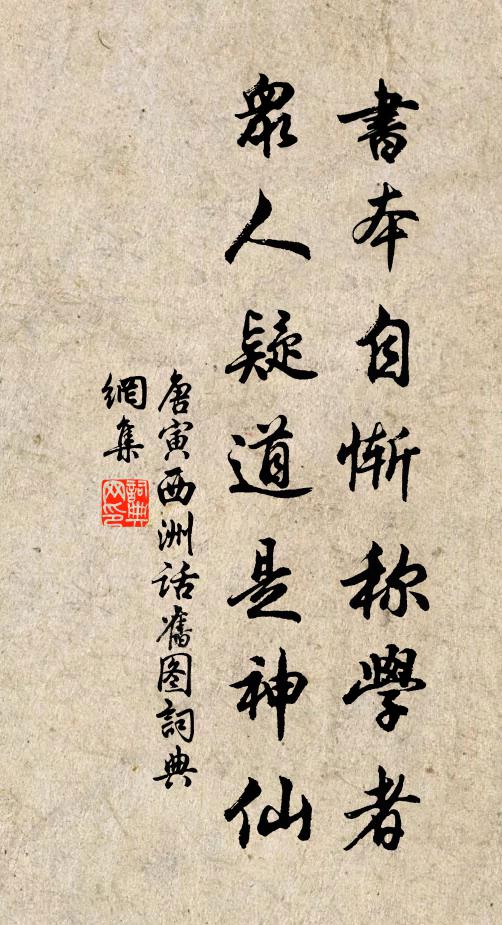 書本自慚称學者
眾人疑道是神仙
唐寅西洲话舊图詞典
網集
詞典
网印